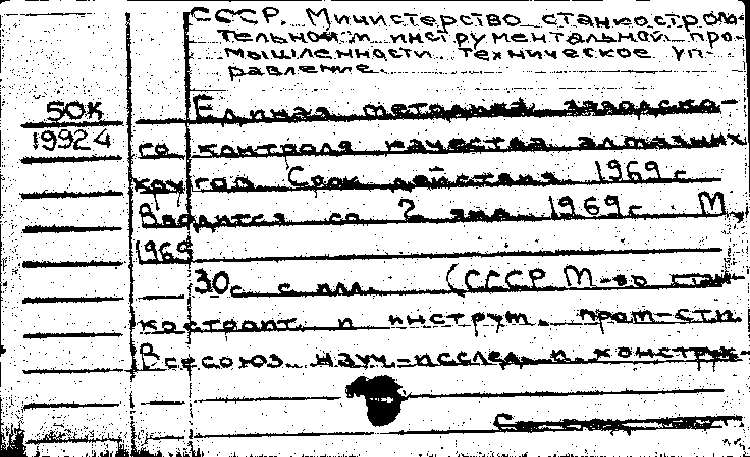 СССР. Министерство станкострои-
тельной и инструментальной про-
мышленности. Техническое уп-
равление.
50К
19924
Единая методика заводско-
го контроля качества алмазных
кругов. Срок действия 1969 г
Вводится со 2 янв. 1969 г. М
1969
30с. с илл. (СССР М-во стан-
костроит. и инструм. пром-сти.
Всесоюз. науч.-исслед. и конструк-
См. след. карт.